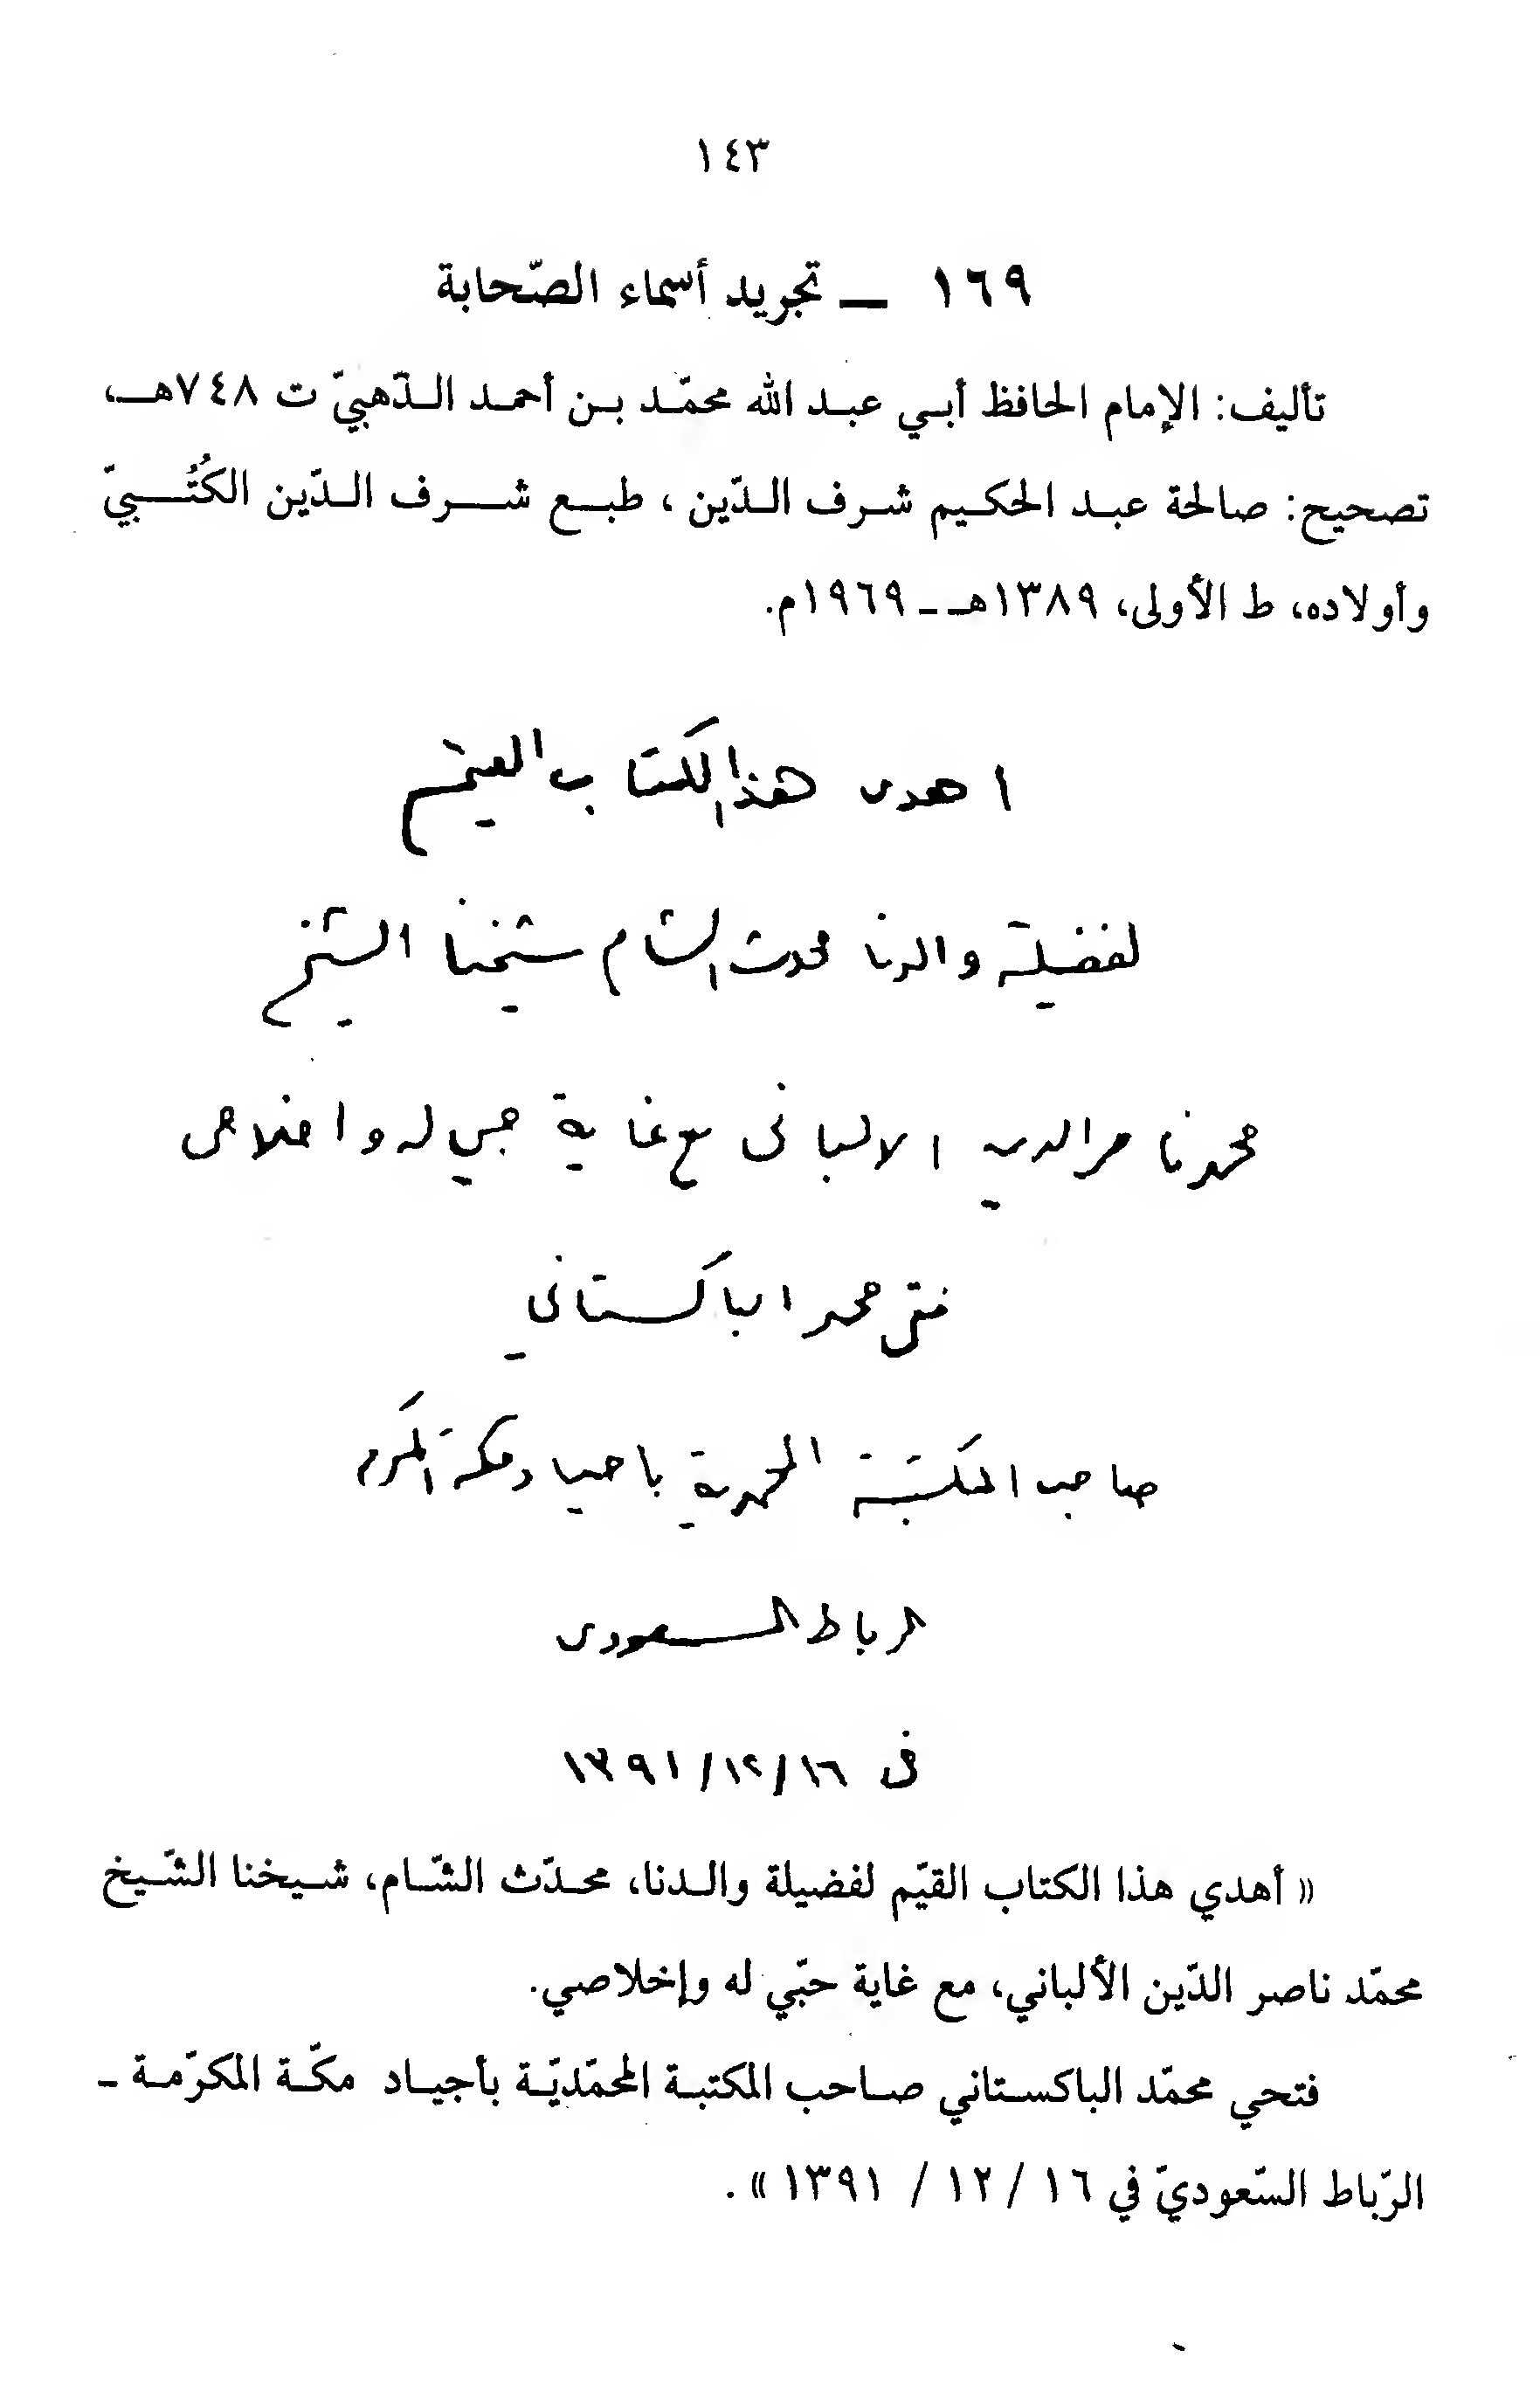 ١٤٣
١٦٩ ـ تجريد أسماء الصّحابة
تأليف: الإمام الحافظ أبي عبد الله محمّد بن أحمد الذّهبيّ ت ٧٤٨هـ،
تصحيح: صالحة عبد الحكيم شرف الدّين ، طبع شرف الدّين الكُتُبيّ
وأولاده، ط الأولى، ١٣٨٩هـ ـ ١٩٦٩م.
اهدى هذا الكتاب القيم
لفضيلة والدنا محدث الشام شيخنا الشيخ
محمد ناصر الدين الالباني مع غاية حبي له واخلاصى
فتحى محمد الباكستاني
صاحب المكتبة المحمدية باجياد مكة المكرمة
الرباط السعودى
فى ١٣٩١/١٢/١٦
« أهدي هذا الكتاب القيّم لفضيلة والدنا، محدّث الشّام، شيخنا الشّيخ
محمّد ناصر الدّين الألباني، مع غاية حبّي له وإخلاصي.
فتحي محمّد الباكستاني صاحب المكتبة المحمّديّة بأجياد مكّة المكرّمة ـ
الرّباط السّعوديّ في ١٦ / ١٢ / ١٣٩١ » .